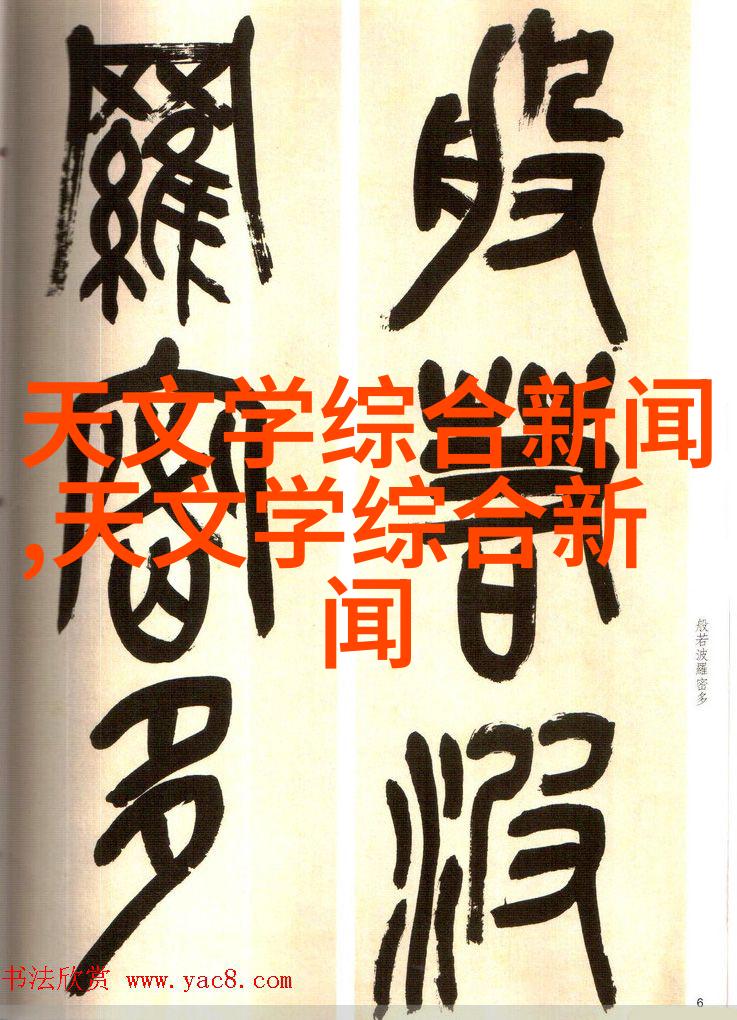 般若波
羅密多
天文学综合新闻
,天文学综合新
闻
般若波羅密多
书法欣赏 www.yac8.com
6